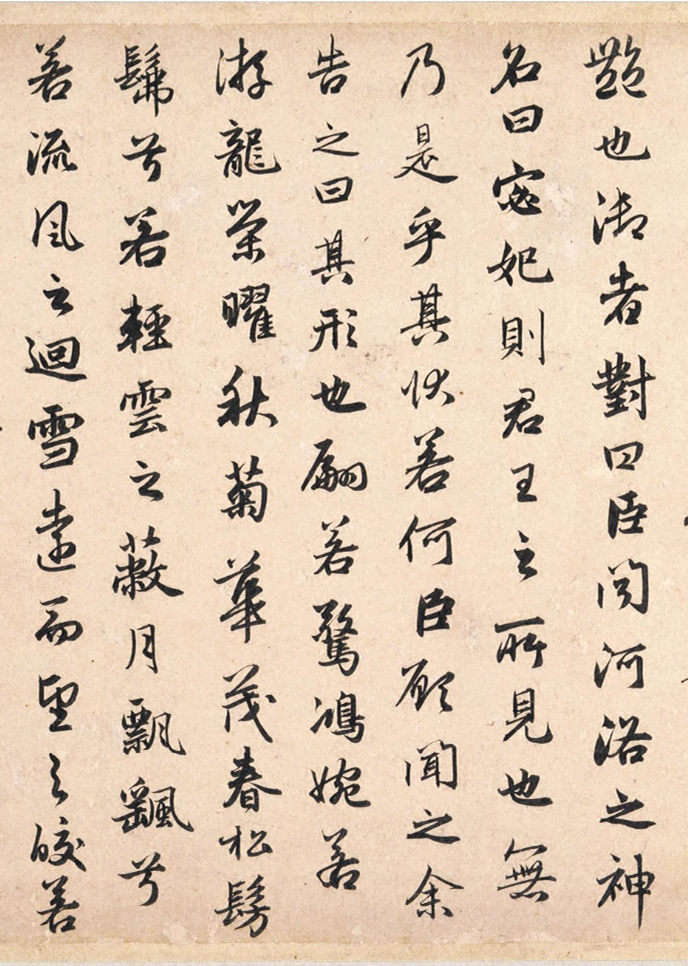 艷也御者對曰臣聞河洛之神
名曰宓妃則君王之所見也無
乃是乎其狀若何臣願聞之余
告之曰其形也翩若驚鴻婉若
游龍榮曜秋菊華茂春松髣
髴兮若輕雲之蔽月飄颻兮
若流風之迴雪遠而望之皎若